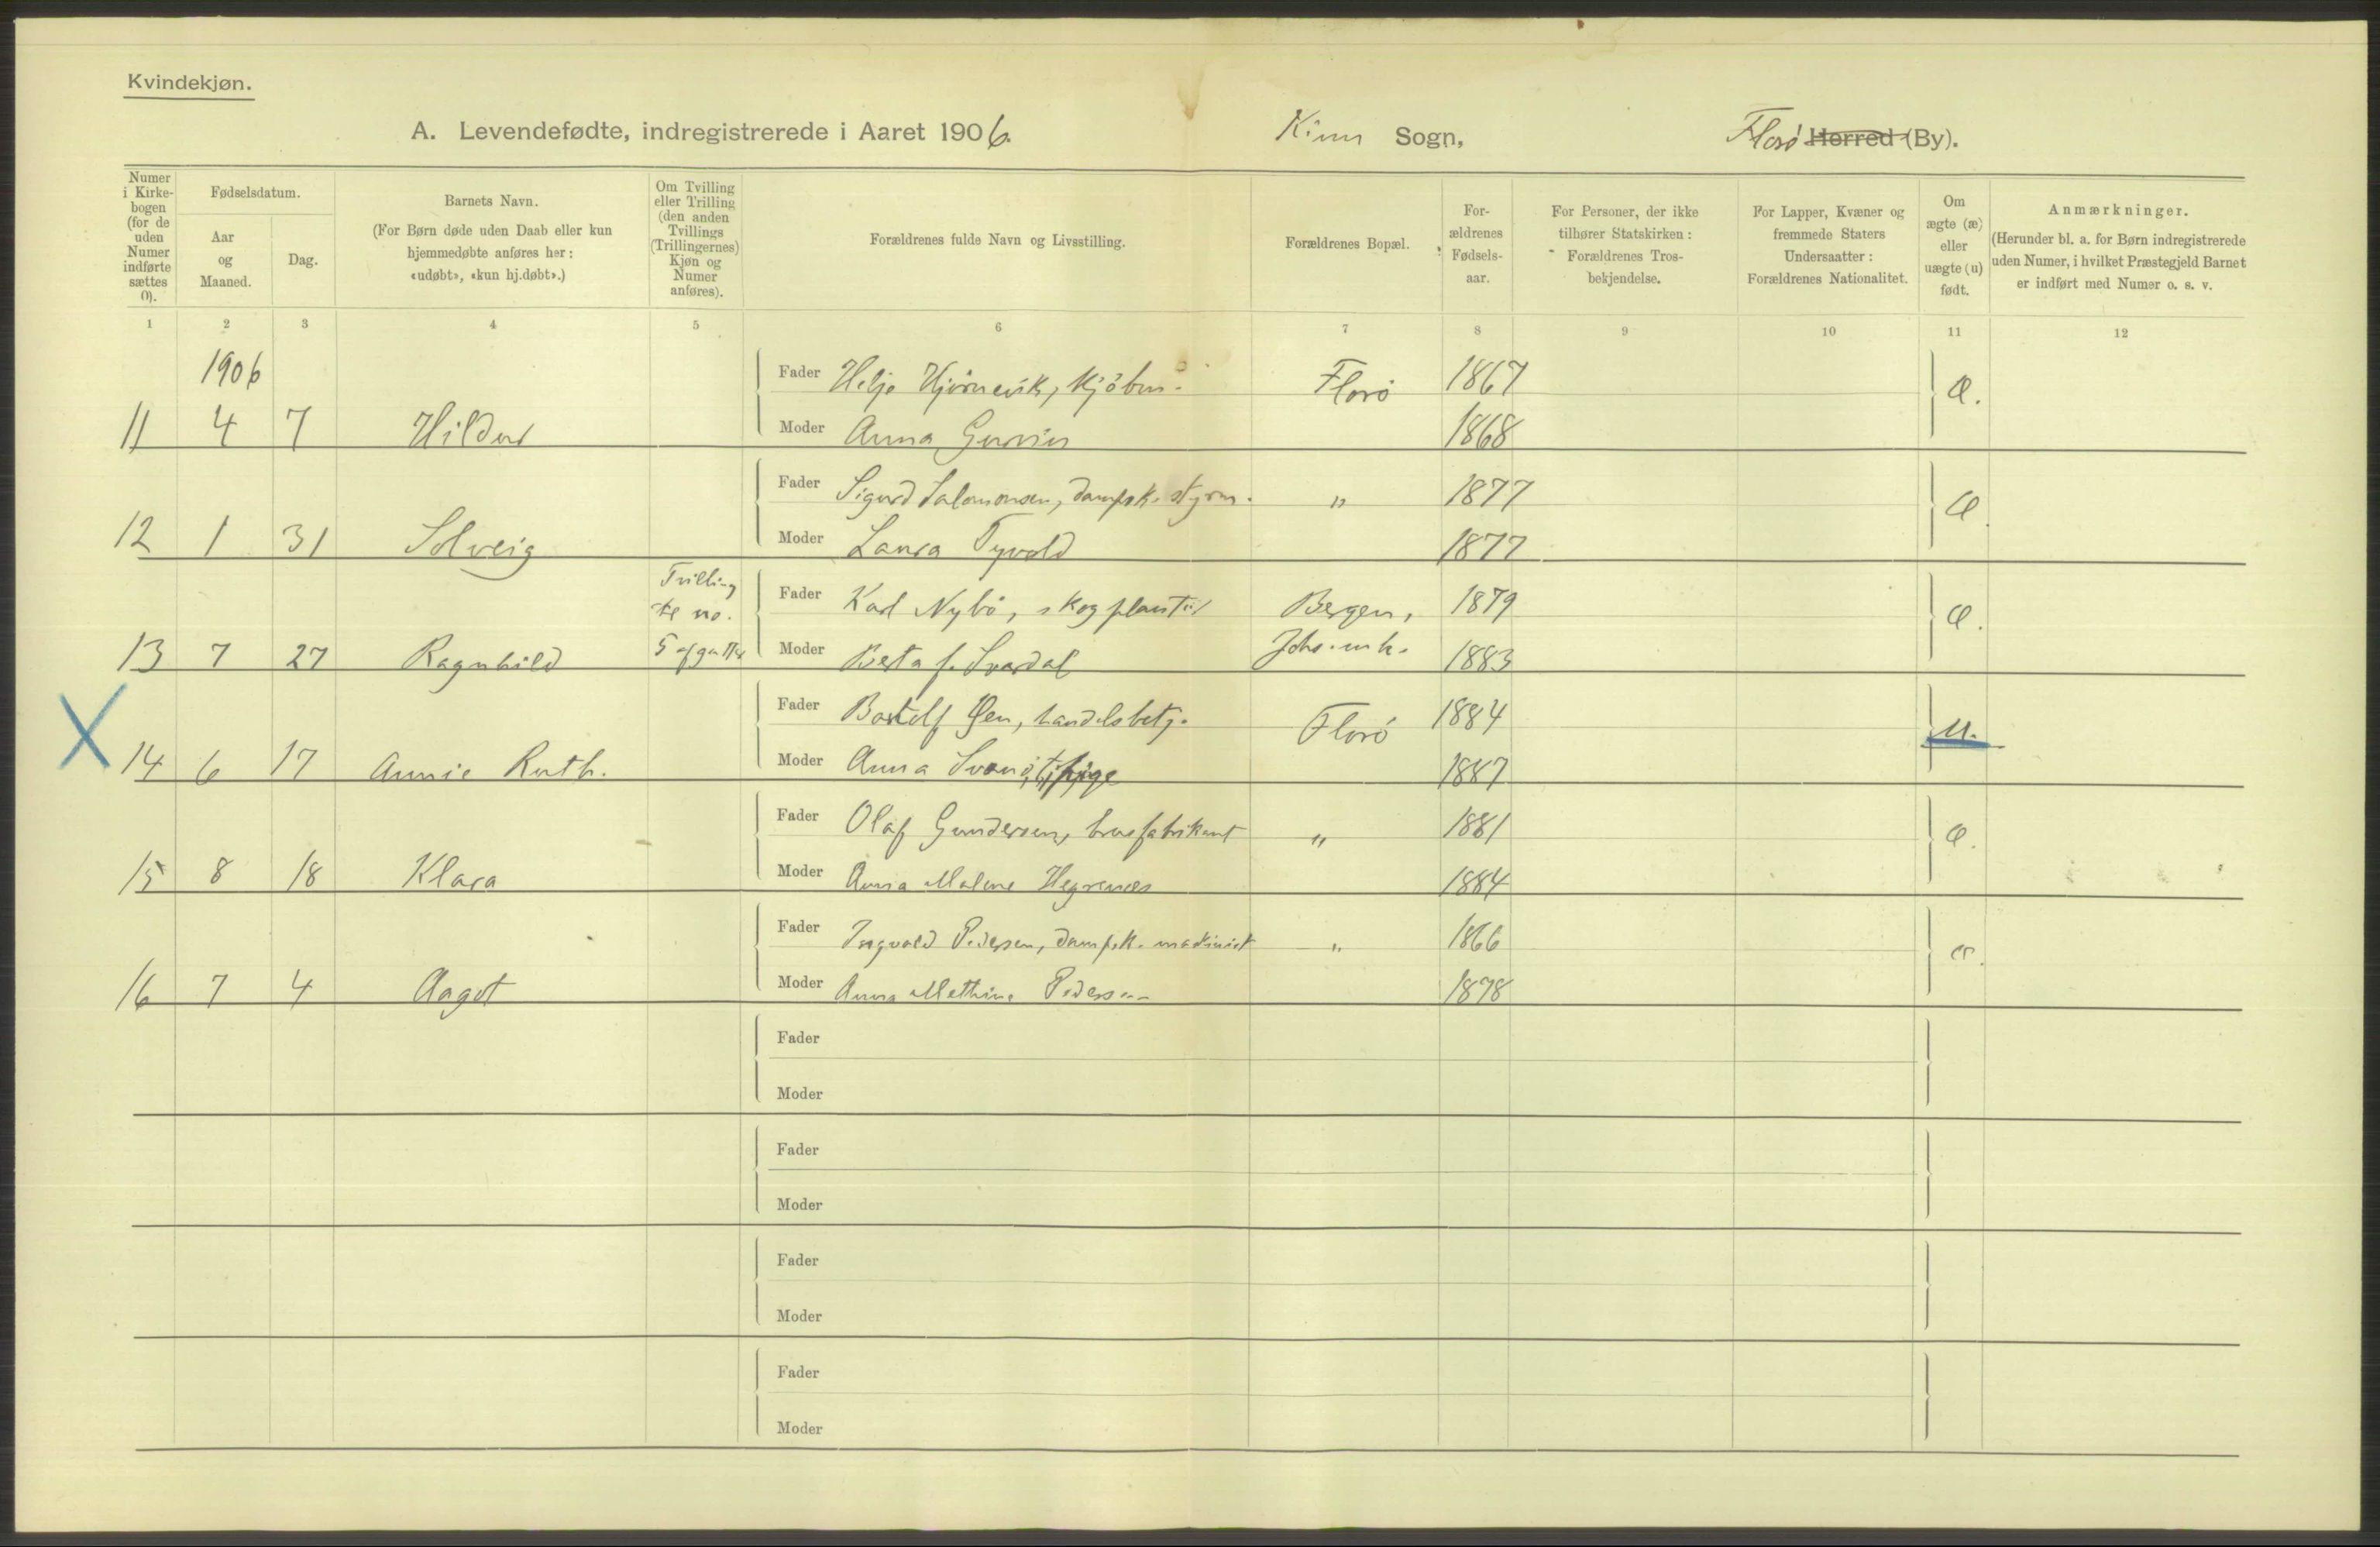 Kvindekjøn.
A. Levendefødte, indregistrerede i Aaret 1906. Kinn Sogn, Florø Herred (By).
Numer i Kirkebogen (for de uden Numer indførte sættes 0).
Fødselsdatum.
Aar og Maaned.
Dag.
Barnets Navn.
(For Børn døde uden Daab eller kun hjemmedøbte anføres her: «udøbt», «kun hj.døbt».)
Om Tvilling eller Trilling (den anden Tvillings (Trillingernes) Kjøn og Numer anføres).
Forældrenes fulde Navn og Livsstilling.
Forældrenes Bopæl.
Forældrenes Fødselsaar.
For Personer, der ikke tilhører Statskirken: Forældrenes Trosbekjendelse.
For Lapper, Kvæner og fremmede Staters Undersaatter: Forældrenes Nationalitet.
Om ægte (æ) eller uægte (u) født.
Anmærkninger.
(Herunder bl. a. for Børn indregistrerede uden Numer, i hvilket Præstegjeld Barnet er indført med Numer o. s. v.
1 2 3 4 5 6 7 8 9 10 11 12
1906
Fader Helje Hjørnevik, kjøbm. Florø 1867 æ.
11 4 7 Hildur Moder Anna 1868
Fader Sigurd Salomonsen, dampsk. styrm. " 1877 æ.
12 1 31 Solveig Moder Laura Tyvold 1877
Tvilling
te no.
Fader Karl Nybø, skogplant Bergen, 1879 æ.
13 7 27 Ragnhild 5 af gutter Moder Berta f. Svardal Johs. mk. 1883
Fader Botolf Øen, handelsbetj. Florø 1884 u.
X 14 6 17 Annie Ruth. Moder Anna Svanø, tj.pige 1887
Fader Olaf Gundersen, brusfabrikant " 1881 æ.
15 8 18 Klara Moder Anna Malene Hegrenæs 1884
Fader Ingvald Pedersen, dampsk. maskinist " 1866 æ.
16 7 4 Aagot Moder Anna Methine Pedersen 1878
Fader
Moder
Fader
Moder
Fader
Moder
Fader
Moder